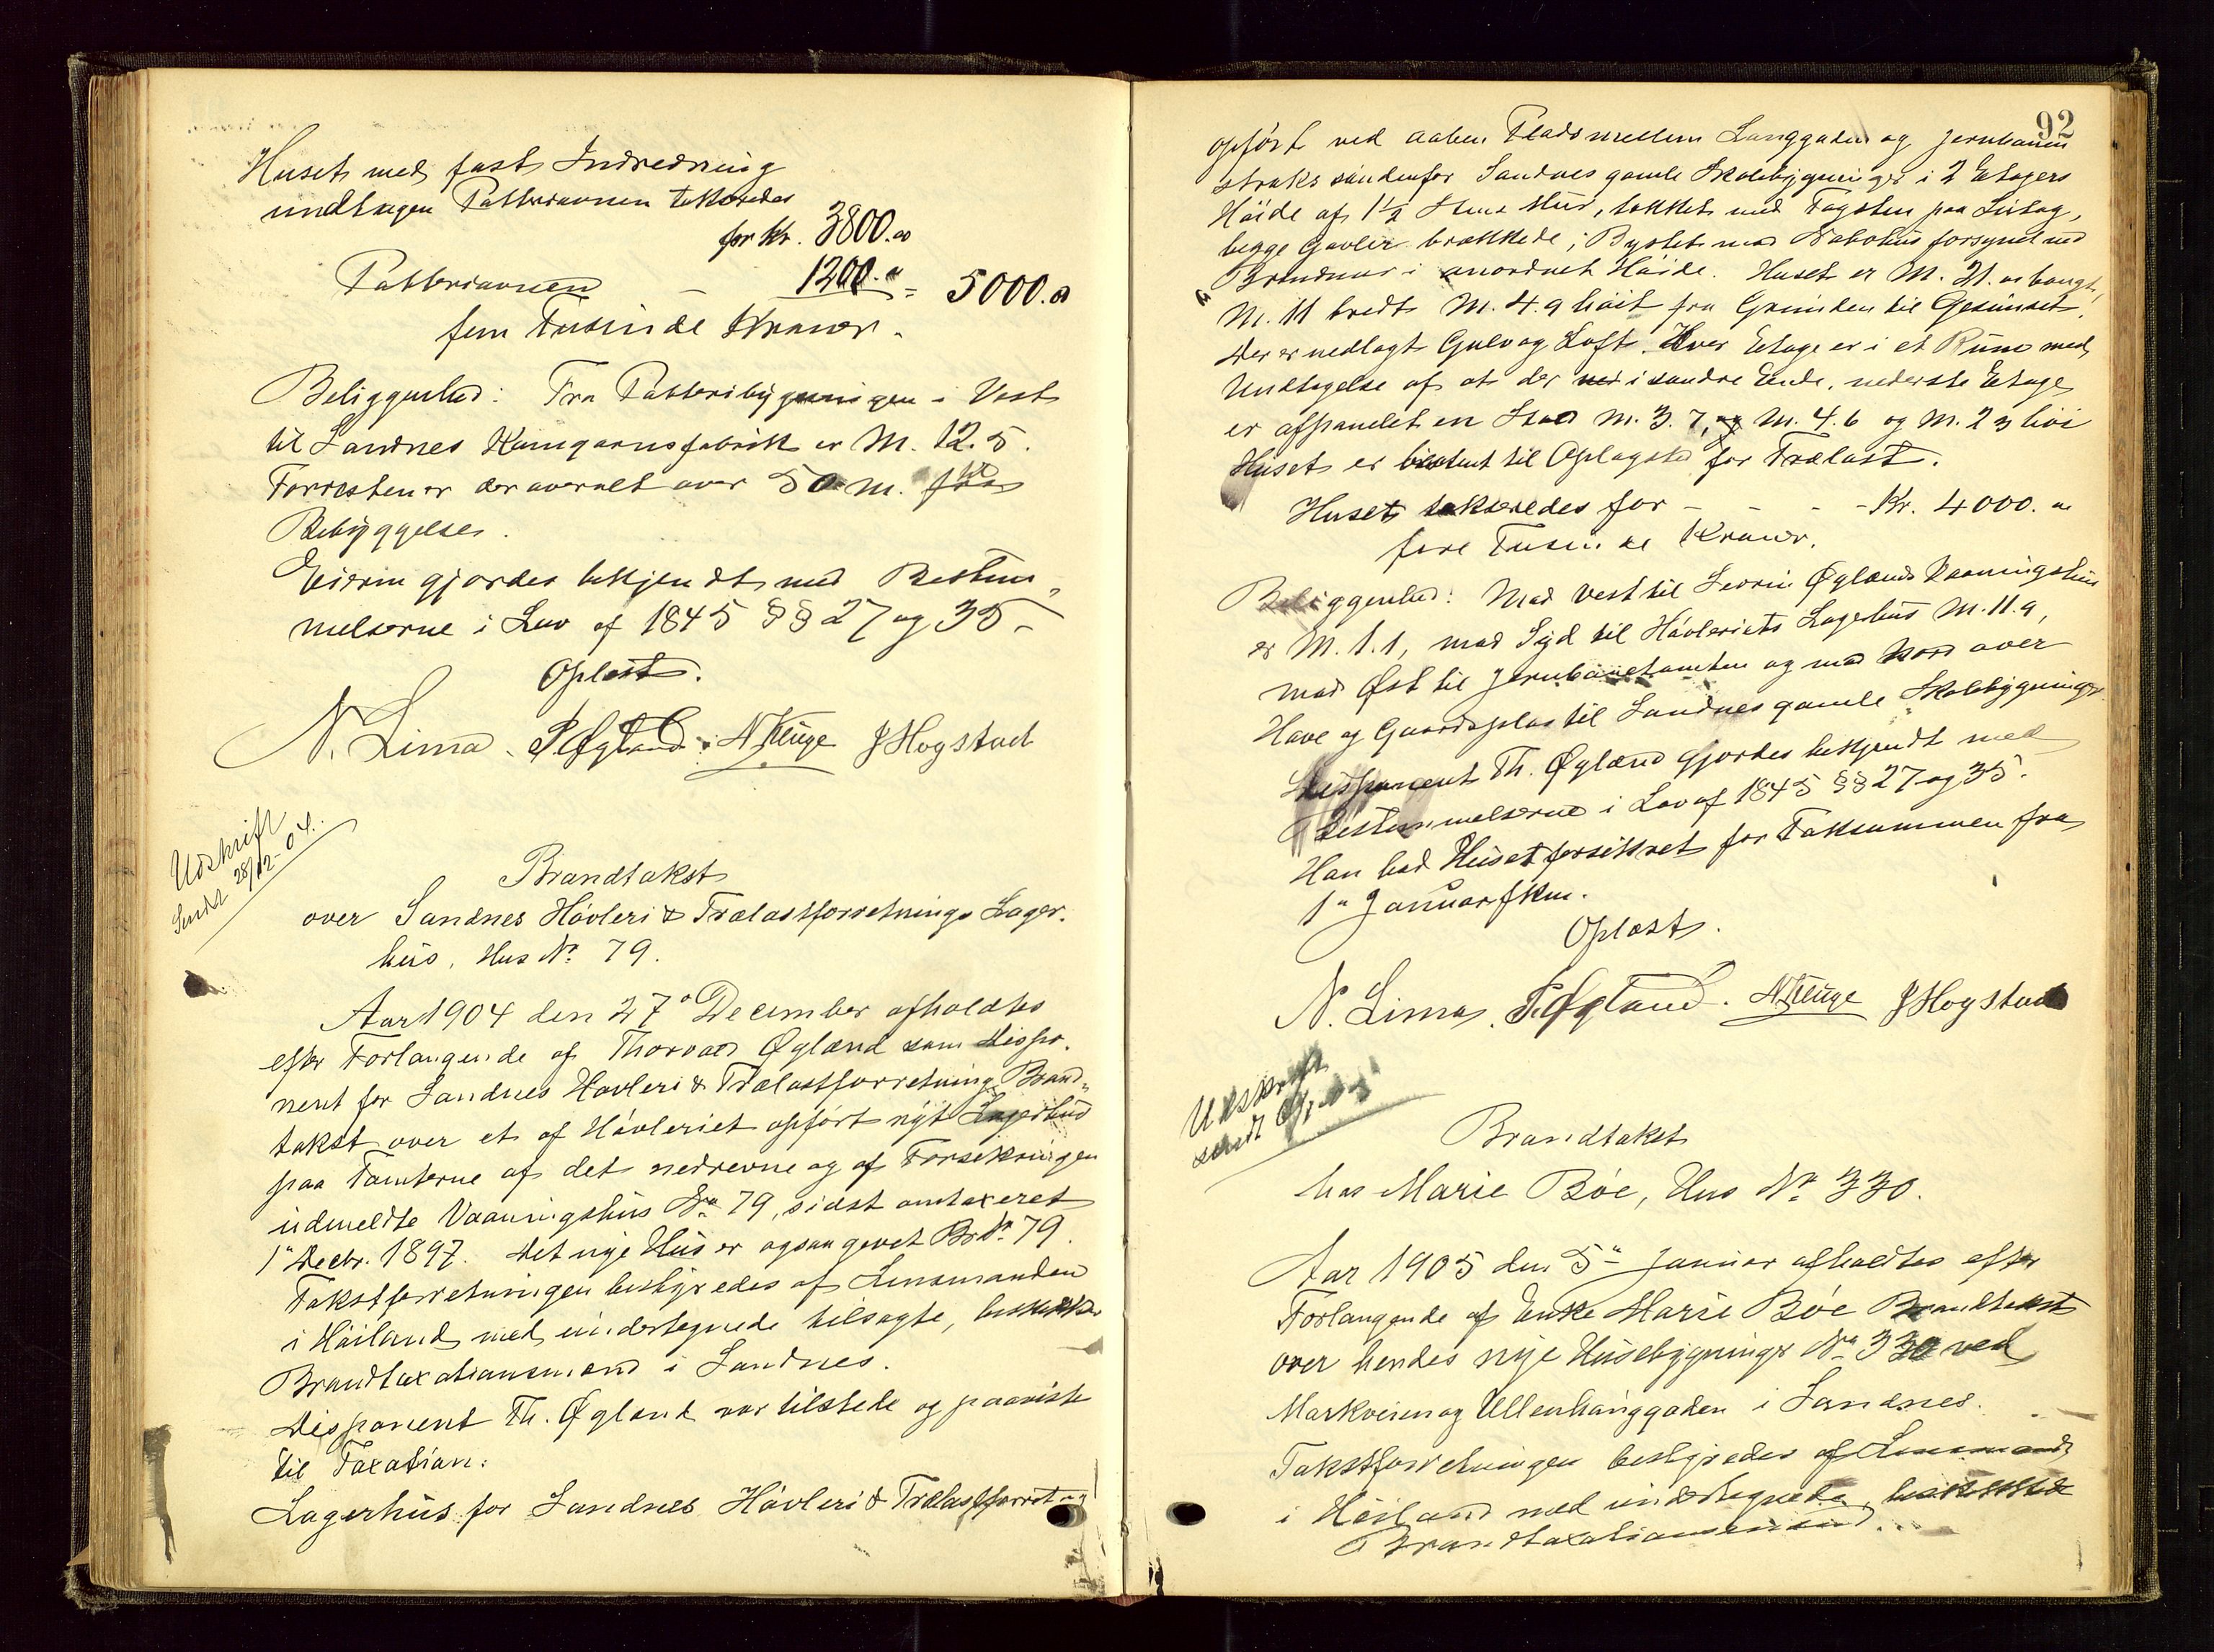 Huset med fast Indredning
undtagen Potteriovnen taksredes
for Kr. 3800.00
Potteriovnen – 1200.00 = 5000.00
fem Tusinde Kroner.
Beliggenhed: Fra Potteribygningen i Vest
til Sandnes Kamgarnsfabrik er M. 12.5.
Forresten er der overalt over 50 m. fra
Bebyggelse.
Eieren gjordes bekjendt med Bestem-
melserne i Lov af 1845 §§ 27 og 35.–
Oplæst.
N. Lima. T. Øgland. N Kluge J Hogstad
Udskrift
Sendt 28/12-04.
Brandtakst
over Sandnes Høvleri & Trælastforretnings Lager-
hus, Hus No. 79.
Aar 1904 den 27de December afholdtes
efter Forlangende af Thorvald Øgland som Dispo-
nent for Sandnes Høvleri & Trælastforretning Brand-
takst over et af Høvleriet opført nyt Lagerhus
paa Tomterne af det nedrevne og af Forsikringen
udmeldte Vaaningshus No 79, sidst omtaxeret
1" Decbr. 1897. Det nye Hus er ogsaa givet Br No. 79.
Takstforretningen bestyredes af Lensmanden
i Høiland med undertegnede tilsagte, beskikkede
Brandtaxationsmænd i Sandnes.
Disponent Th. Øgland var tilstede og paaviste
til Taxation:
Lagerhus for Sandnes Høvleri & Trælastforretng
92
opført ved aaben Plads mellem Langgaden og Jernbanen
straks søndenfor Sandnes gamle Skolebygninger i 2 Etagers
Høide af 1½ Stens Mur, tækket med Tagsten paa Sutag,
begge Gavler brækkede; Bygslet mod Nabohus forsynet med
Brandmur i anordnet Høide. Huset er M. 21.00 langt,
M. 11 bredt M. 4.9 høit fra Grunden til Gesimset.
Der er nedlagt Gulv og Loft. Hver Etage er i et Rum med
Undtagelse af at der i søndre Ende, nederste Etage
er afpanelet en Stald M. 3.7, M. 4.6 og M. 2 3 høi
Huset er bestemt til Oplagsted for Trælast.
Huset takseredes for – – – Kr. 4000.00
fire Tusinde Kroner.
Beliggenhed: Mod Vest til Severin Øglænds Vaaningshus
er M. 1.1, mod Syd til Høvleriets Lagerhus M. 11.9,
mod Øst til Jernbanetomten og mod Nord over
Have og Gaardsplas til Sandnes gamle Skolebygninger
Disponent Th. Øgland gjordes bekjendt med
Bestemmelserne i Lov af 1845 §§ 27 og 35.
Han bad Huset forsikret for Taksummen fra
1" Januar fkm.
Oplæst.
N. Lima. T. Øgland. N Kluge J Hogstad
Udskrift
sendt
Brandtakst
hos Marie Bøe, Hus No. 330.
Aar 1905 den 5" Januar afholdtes efter
Forlangende af Enke Marie Bøe Brandtakst
over hendes nye Husebygninger No 330 ved
Markveien og Ullenhauggaden i Sandnes.
Takstforretningen bestyredes af Lensmands
i Høiland med undertegnede, beskikkede
Brandtaxationsmænd.